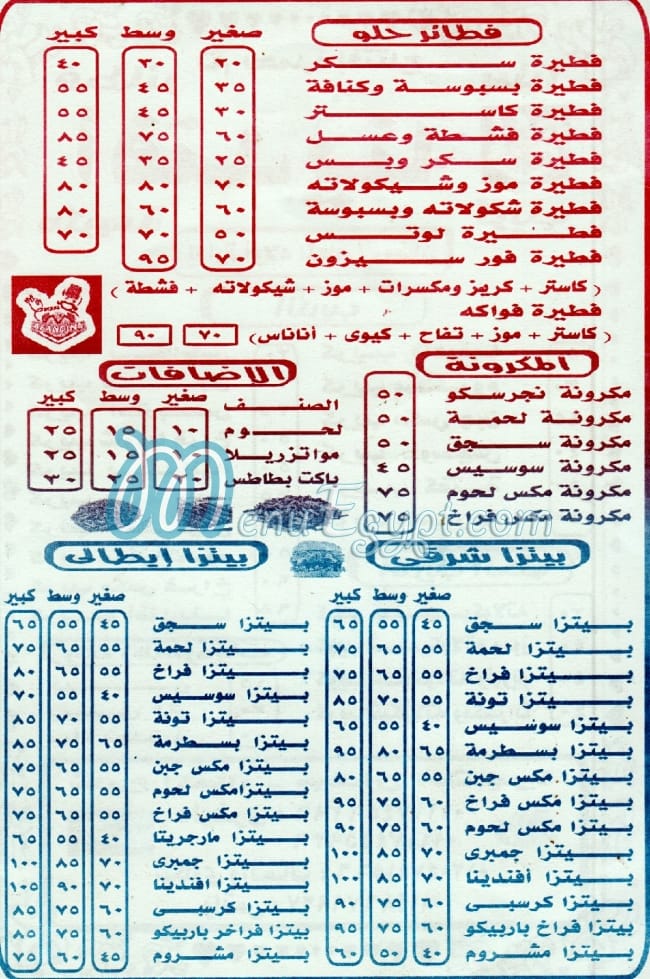 فطائر حلو صغير وسط كبير
فطيرة سكر ٢٠ ٣٠ ٤٠
فطيرة بسبوسة وكنافة ٣٥ ٤٥ ٥٥
فطيرة كاستر ٣٠ ٤٥ ٥٥
فطيرة قشطة وعسل ٦٠ ٧٥ ٨٥
فطيرة سكر وبس ٢٥ ٣٥ ٤٥
فطيرة موز وشيكولاته ٧٠ ٨٠ ٨٠
فطيرة شكولاته وبسبوسة ٥٠ ٦٠ ٨٠
فطيرة لوتس ٥٠ ٦٠ ٧٠
فطيرة فور سيزون ٧٠ ٩٥
( كاستر + كريز ومكسرات + موز + شيكولاته + قشطة )
فطيرة فواكه
( كاستر + موز + تفاح + كيوى + أناناس ) ٧٠ ٩٠
المكرونة
مكرونة نجرسكو ٥٠
مكرونة لحمة ٥٠
مكرونة سجق ٥٠
مكرونة سوسيس ٤٥
مكرونة مكس لحوم ٧٥
مكرونة مكس فراخ ٧٥
الاضافات
الصنف صغير وسط كبير
لحوم ١٠ ١٥ ٢٥
مواتزريلا ١٠ ١٥ ٢٥
باكت بطاطس ٢٠ ٢٥ ٣٠
MenuEgypt.com
بيتزا شرقى
صغير وسط كبير
بيتزا سجق ٤٥ ٥٥ ٦٥
بيتزا لحمة ٥٥ ٦٥ ٧٥
بيتزا فراخ ٥٥ ٦٥ ٧٥
بيتزا تونة ٥٥ ٧٠ ٨٥
بيتزا سوسيس ٤٠ ٥٥ ٦٥
بيتزا بسطرمة ٦٥ ٨٠ ٩٥
بيتزا مكس جبن ٥٥ ٦٥ ٨٠
بيتزا مكس فراخ ٦٠ ٧٥ ٩٥
بيتزا مكس لحوم ٦٠ ٧٥ ٩٠
بيتزا جمبرى ٧٠ ٨٥ ١٠٠
بيتزا أفندينا ٧٠ ٨٥ ١٠٠
بيتزا كرسبى ٦٠ ٧٥ ٩٠
بيتزا فراخ باربيكو ٦٠ ٧٥ ٩٠
بيتزا مشروم ٤٠ ٥٠ ٦٠
بيتزا إيطالى
صغير وسط كبير
بيتزا سجق ٤٥ ٥٥ ٦٥
بيتزا لحمة ٥٥ ٦٥ ٧٥
بيتزا فراخ ٥٥ ٦٥ ٨٠
بيتزا سوسيس ٤٠ ٥٥ ٧٠
بيتزا تونة ٥٥ ٧٠ ٨٥
بيتزا بسطرمة ٦٥ ٧٥ ٨٥
بيتزا مكس جبن ٥٥ ٦٥ ٧٥
بيتزامكس لحوم ٥٥ ٦٥ ٧٥
بيتزا مكس فراخ ٥٥ ٦٥ ٧٥
بيتزا مارجريتا ٤٠ ٥٥ ٦٥
بيتزا جمبرى ٧٠ ٨٥ ١٠٠
بيتزا افندينا ٧٠ ٩٠ ١٠٥
بيتزا كرسبى ٦٠ ٧٥ ٨٥
بيتزا فراخر باربيكو ٦٠ ٧٥ ٨٥
بيتزا مشروم ٤٠ ٦٠ ٧٥